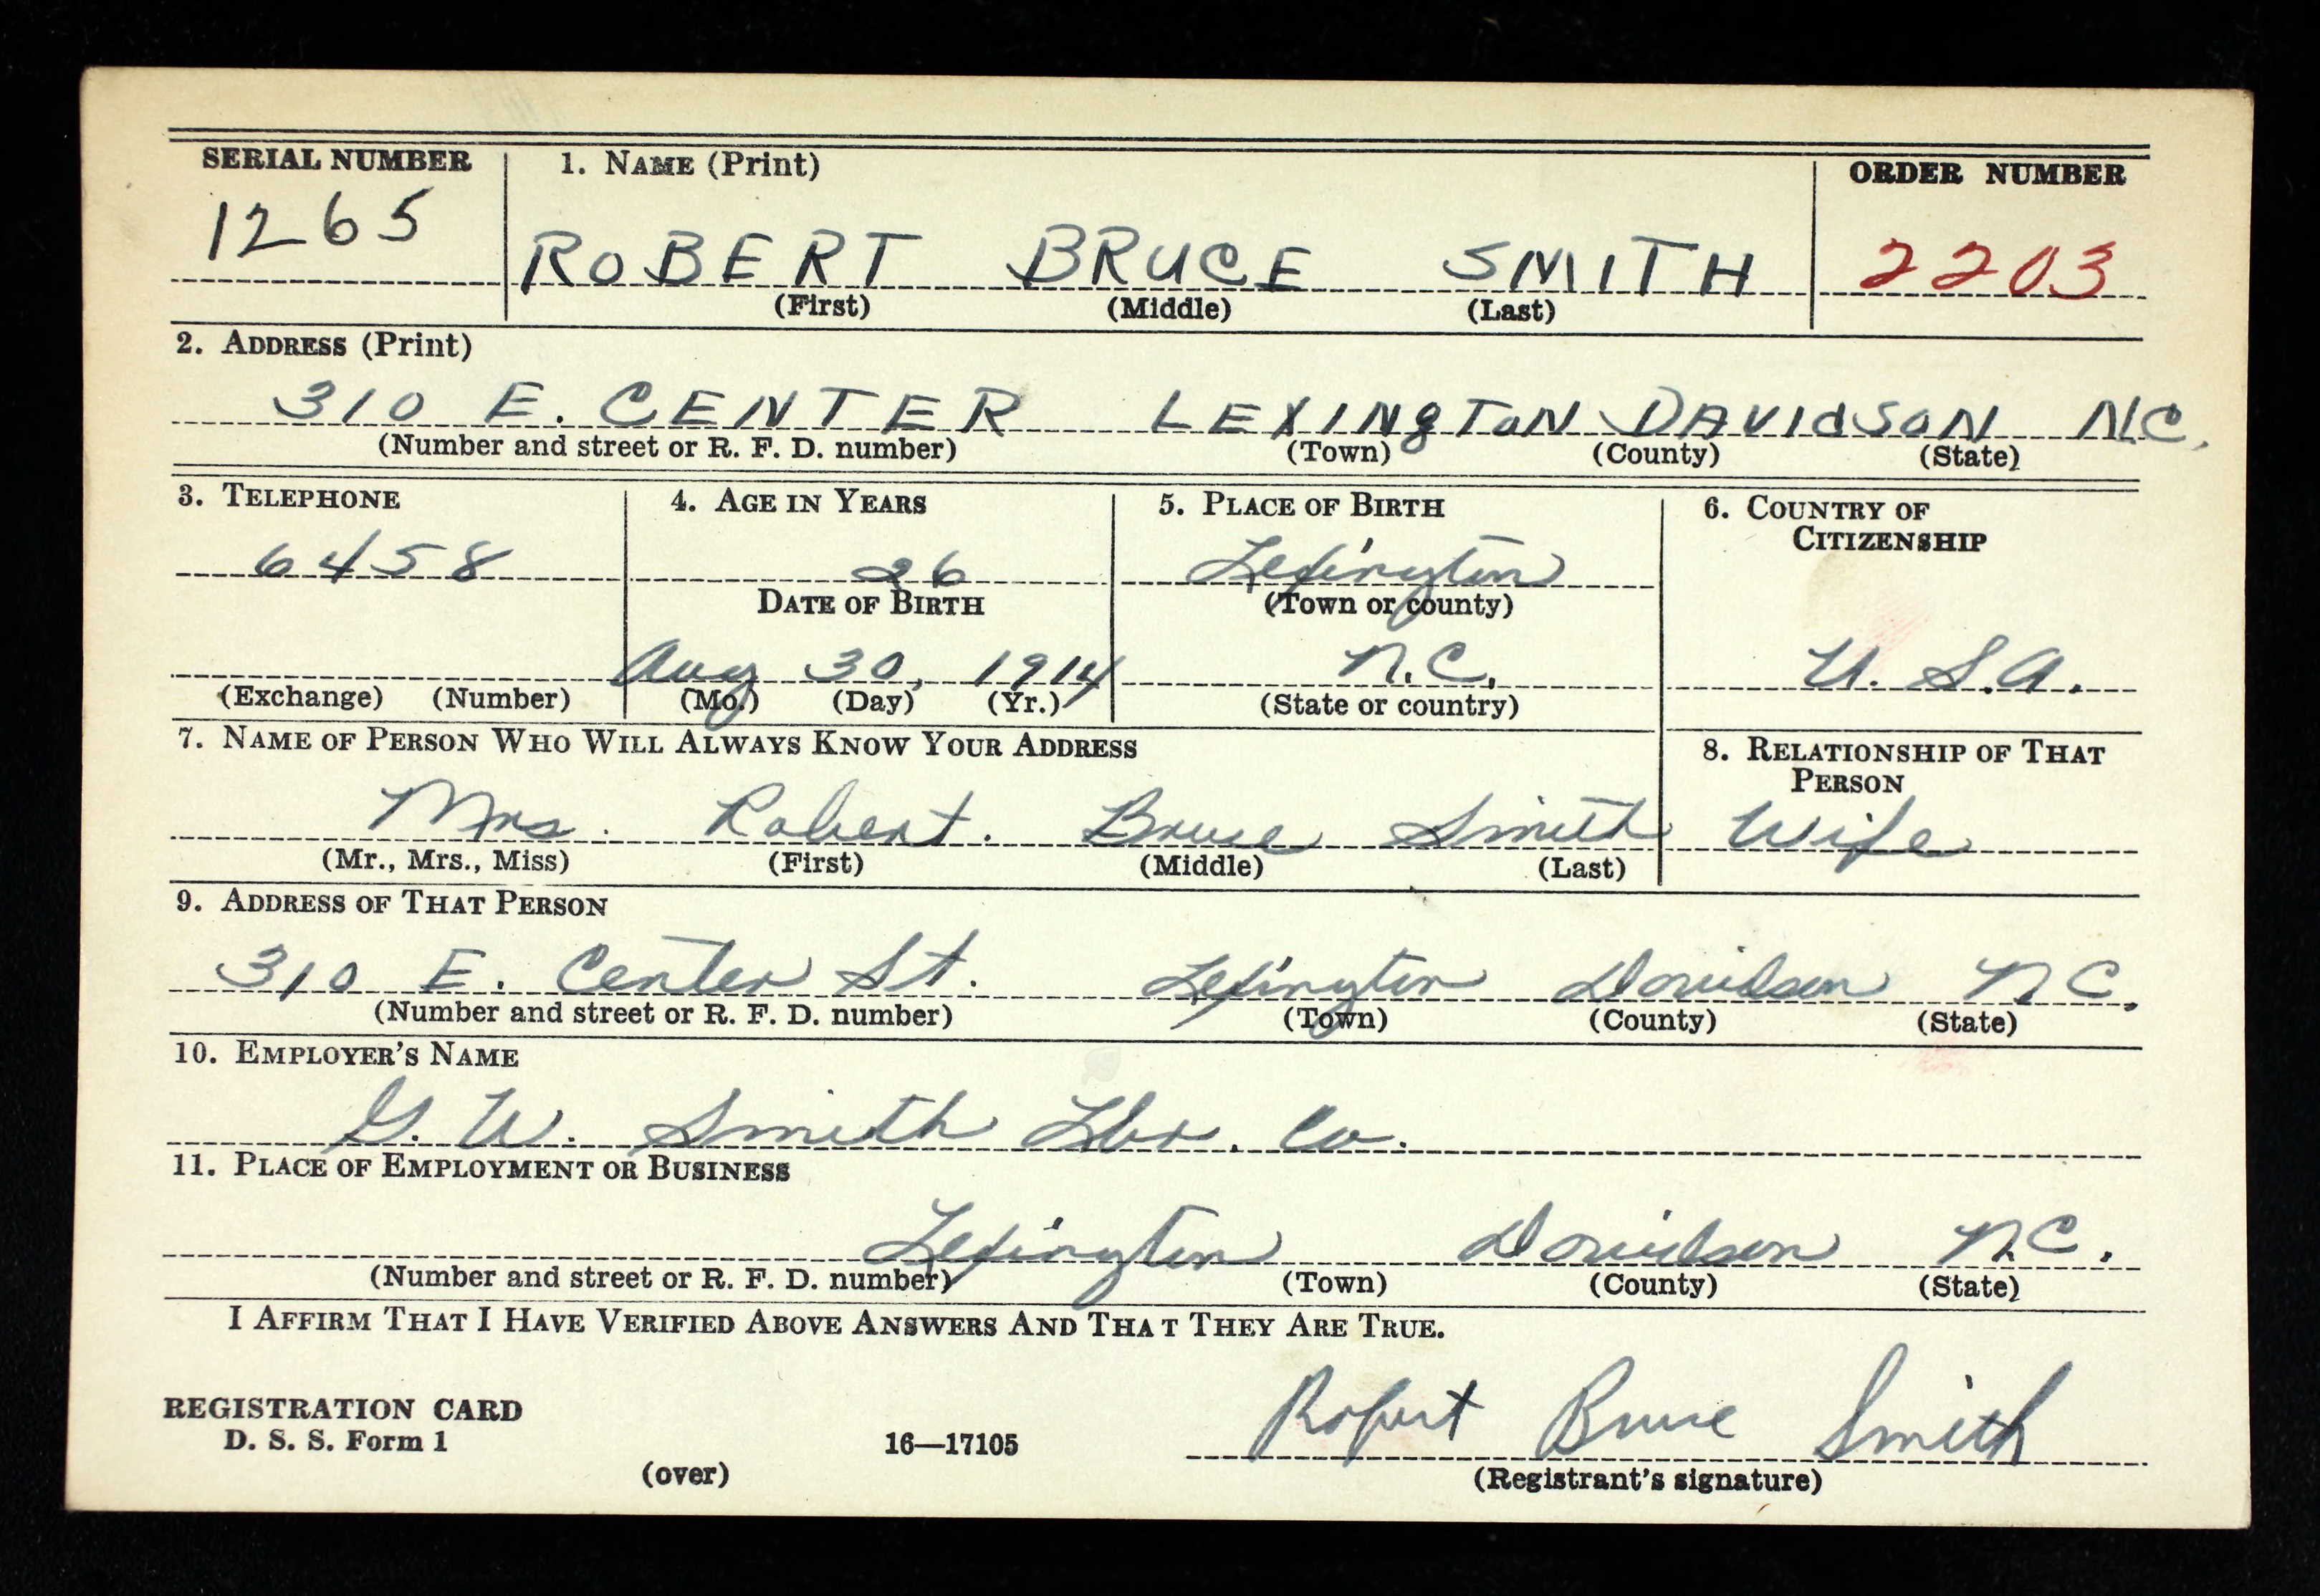 SERIAL NUMBER 1. NAME (Print) ORDER NUMBER
1265 ROBERT BRUCE SMITH 2203
(First) (Middle) (Last)
2. ADDRESS (Print)
310 E. CENTER LEXINgToN DAVIdSoN N.C.
(Number and street or R. F. D. number) (Town) (County) (State)
3. TELEPHONE 4. AGE IN YEARS 5. PLACE OF BIRTH 6. COUNTRY OF
CITIZENSHIP
6458 26 Lexington
DATE OF BIRTH (Town or county)
Aug 30, 1914 N.C. U.S.A.
(Exchange) (Number) (Mo.) (Day) (Yr.) (State or country)
7. NAME OF PERSON WHO WILL ALWAYS KNOW YOUR ADDRESS 8. RELATIONSHIP OF THAT
PERSON
Mrs. Robert. Bruce Smith Wife
(Mr., Mrs., Miss) (First) (Middle) (Last)
9. ADDRESS OF THAT PERSON
310 E. Center St. Lexington Davidson N.C.
(Number and street or R. F. D. number) (Town) (County) (State)
10. EMPLOYER'S NAME
G. W. Smith Lbr. Co.
11. PLACE OF EMPLOYMENT OR BUSINESS
Lexington Davidson N.C.
(Number and street or R. F. D. number) (Town) (County) (State)
I AFFIRM THAT I HAVE VERIFIED ABOVE ANSWERS AND THAT THEY ARE TRUE.
REGISTRATION CARD
D. S. S. Form 1 16—17105 Robert Bruce Smith
(over) (Registrant's signature)